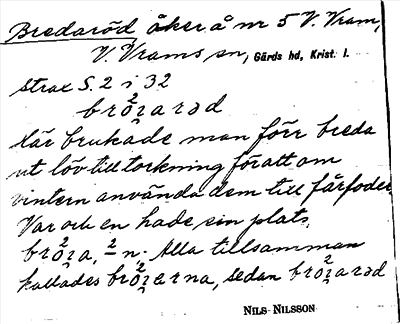 Bredaröd åker å nr 5 V. Vram,
V. Vrams sn, Gärds hd, Krist. l.
strax S. 2 i 32
brò²ʒarəd
Här brukade man förr breda
ut löv till torkning för att om
vintern använda dem till fårfoder
Var och en hade sin plats,
brò²ʒa, ²n. Alla tillsamman
kallades brò²ʒərna, sedan brò²ʒarəd
NILS NILSSON